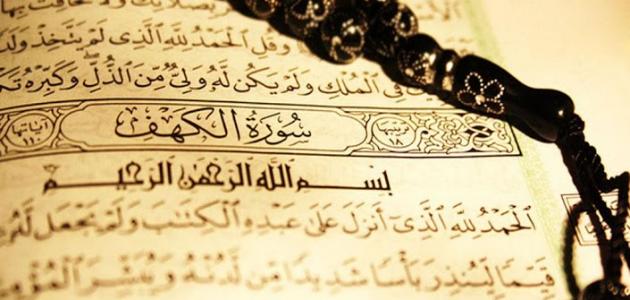 وَقُلِ ٱلْحَمْدُ لِلَّهِ ٱلَّذِى لَمْ يَتَّخِذْ وَلَدًا
فِى ٱلْمُلْكِ وَلَمْ يَكُن لَّهُۥ وَلِىٌّ مِّنَ ٱلذُّلِّ وَكَبِّرْهُ
ترتيبها ١٨ سُورَةُ الكَهْفِ آياتها ١١٠
بِسْمِ ٱللَّهِ ٱلرَّحْمَٰنِ ٱلرَّحِيمِ
ٱلْحَمْدُ لِلَّهِ ٱلَّذِىٓ أَنزَلَ عَلَىٰ عَبْدِهِ ٱلْكِتَٰبَ وَلَمْ يَجْعَل لَّهُۥ
قَيِّمًا لِّيُنذِرَ بَأْسًا شَدِيدًا مِّن لَّدُنْهُ وَيُبَشِّرَ ٱلْمُؤْمِ